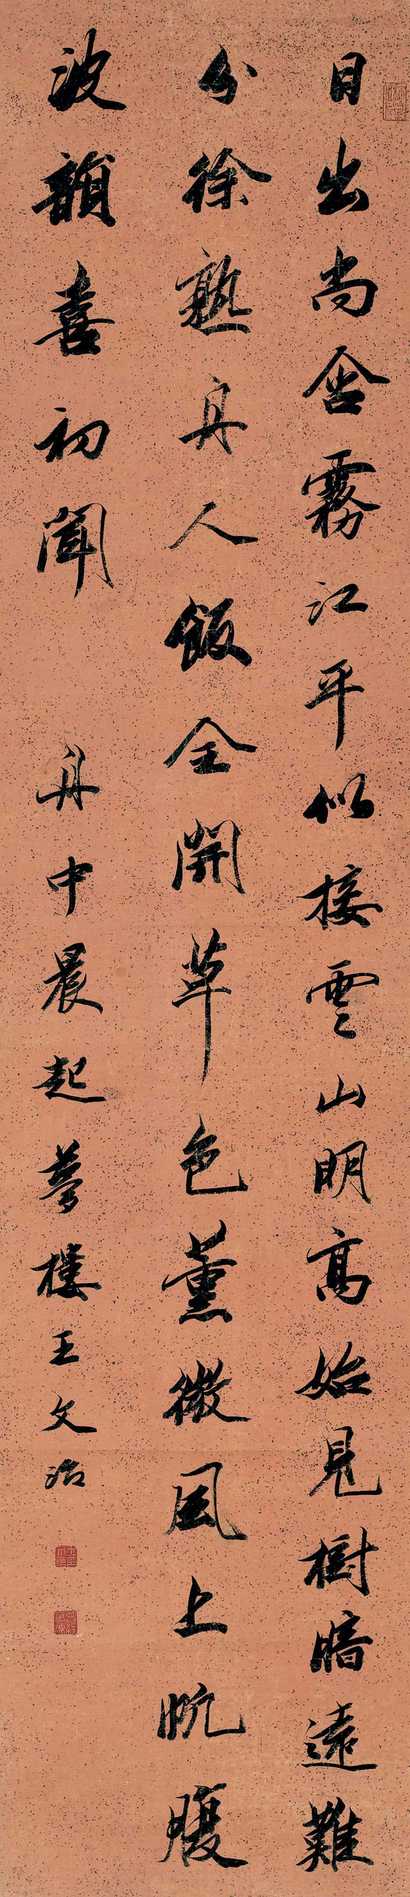 日出尚含霧江平似接雲山明高始見樹暗遠難
分徐熟舟人飯全開草色薰微風上帆腹
波韻喜初聞　舟中晨起夢樓王文治